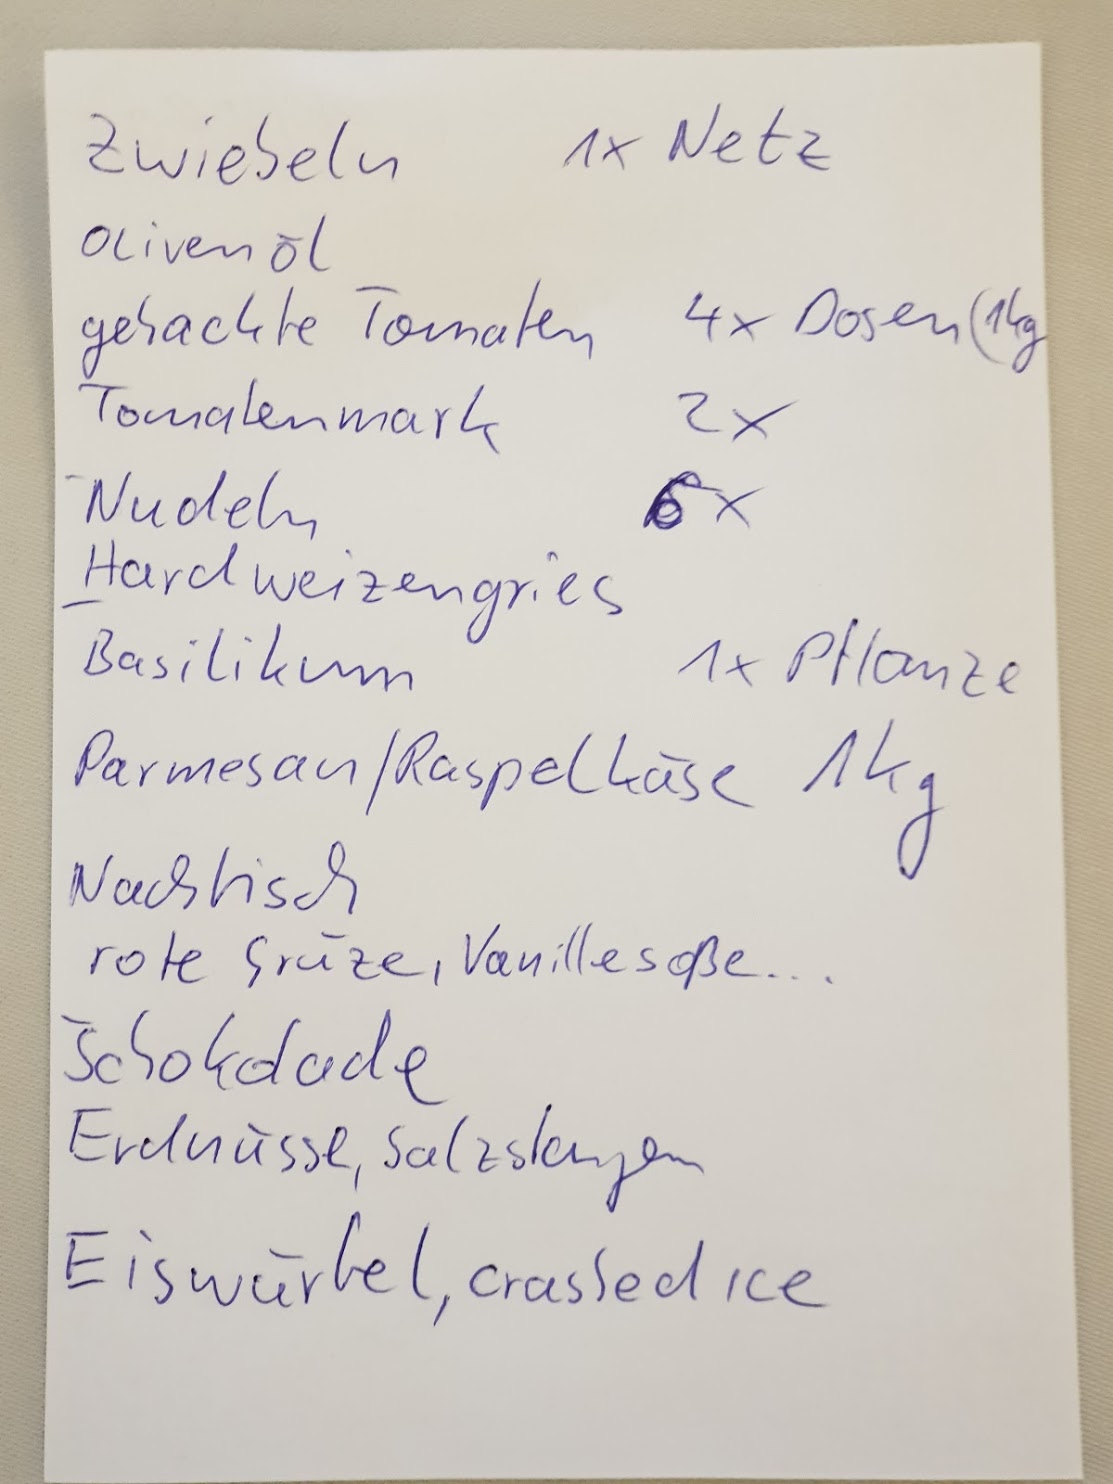 Zwiebeln 1x Netz
Olivenöl
gehackte Tomaten 4x Dosen (1kg
Tomatenmark 2x
Nudeln 6x
Hardweizengries
Basilikum 1x Pflanze
Parmesan/Raspelkäse 1kg
Nachtisch
rote Grüze, Vanillesoße...
Schokolade
Erdnüsse, Salzstangen
Eiswürfel, crashed ice